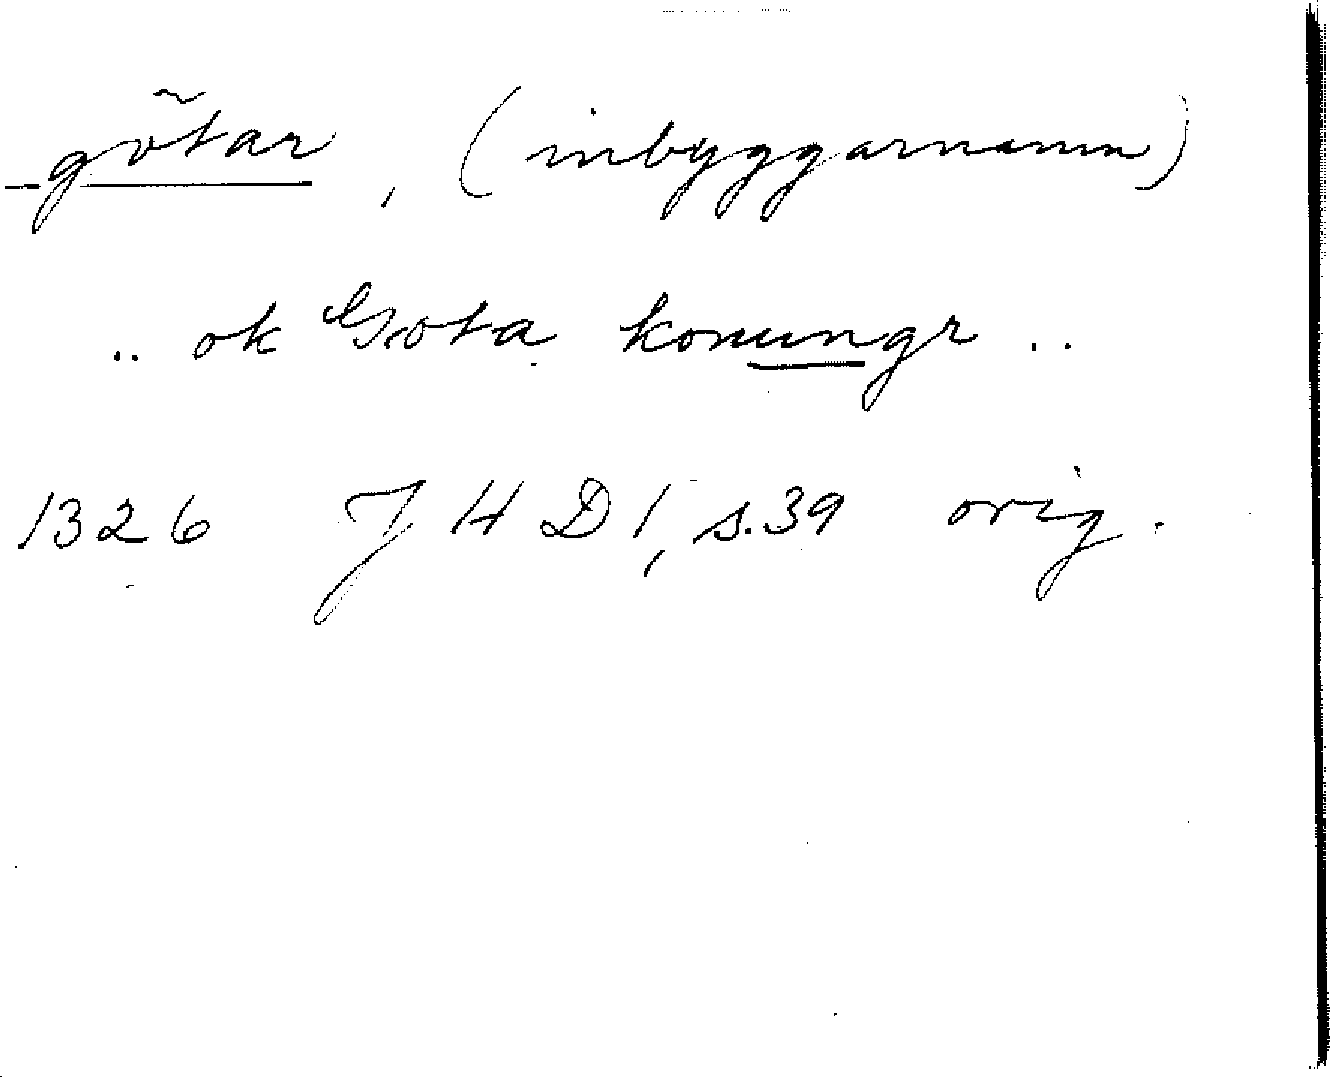 götar, (inbyggarnamn)
.. ok Gota konungr ..
1326 JHD 1, s.39 orig.